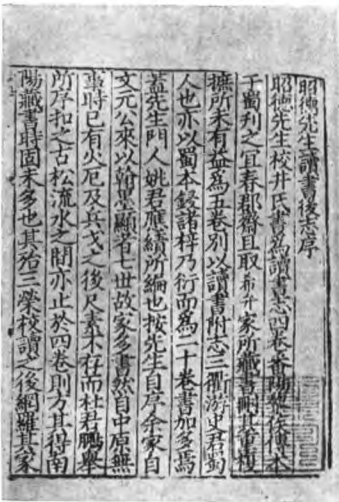 昭德先生讀書後志序
昭德先生校井氏書為讀書志四卷番陽黎侯傳本
于蜀刊之宜春郡齋且取希弁家所藏書刪其重複
摭所未有益為五卷別以讀書附志三衢游史君蜀
人也亦以蜀本鋟諸梓乃衍而為二十卷書加多焉
蓋先生門人姚君應績所編也按先生自序余家自
文元公來以翰墨顯者七世故家多書然自中原無
事時已有火厄及兵戈之後尺素不存而杜君鵬舉
所序扣之古松流水之間亦止於四卷則方其得南
陽藏書時固未多也其殆三榮校讀之後網羅其家